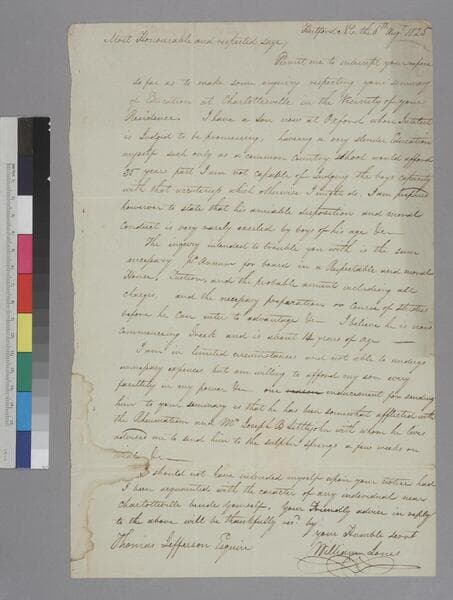 Hertford N.C. the 6th Augt. 1825
Most Honourable and respected sage,
Permit me to interrupt your repose
so far as to make some enquiry respecting your seminary
of Education at Charlotteville in the Vicinity of your
Residence. I have a son now at Oxford whose Intelect
is Judged to be promiseing, haveing a very slender Education
myself such only as a common Country school would afford
35 years past I am not capable of Judging the boys capacity
with that accuteness which otherwise I might do. I am prepared
however to state that his amiable disposition and moral
conduct is very rarely excelled by boys of his age &c—
The inquiry intended to trouble you with is the sum
necessary pr. Annum for board in a Respectable and moral
House, Tuition, and the probable amount including all
charges, and the necessary preparation or Course of Studies
before he can enter to advantage &c I believe he is now
commenceing Greek and is about 14 years of age —
I am in limited circumstances and not able to undergo
unnecessary expences but am willing to afford my son every
facility in my power &c— one reason inducement for sending
him to your seminary is that he has been somewhat afflicted with
the Rheumatism and Mr. Joseph B Littlejohn with whom he lives
advised me to send him to the sulpher springs a few weeks on
&c—
I should not have intruded myself upon your notice had
I been acquainted with the caracter of any individual near
Charlotteville beside yourself, your Friendly advise in reply
to the above will be thankfully recd. by
your Humble Servt
Thomas Jefferson Esquire
William Jones